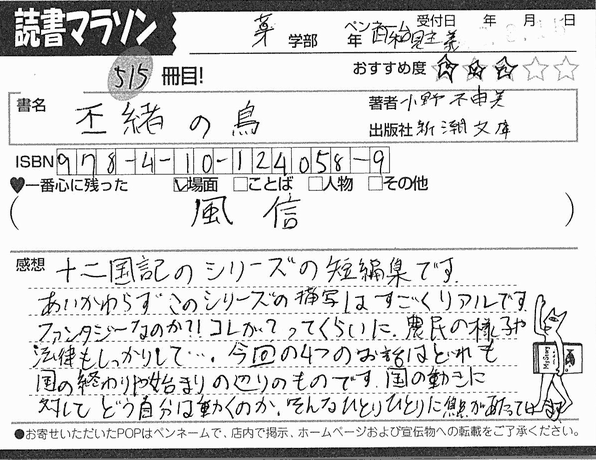 読書マラソン
薬 学部 年 ペンネーム 受付日 年 月 日
515 冊目!
おすすめ度 ☆☆☆☆☆
書名 丕緒の鳥
著者 小野不由美
出版社 新潮文庫
ISBN 978-4-10-124058-9
♥一番心に残った ☑場面 □ことば □人物 □その他
( 風信 )
感想 十二国記のシリーズの短編集です
あいかわらずこのシリーズの描写はすごくリアルです
ファンタジーなのか?!コレがってってくらいに、農民の様子や
法律もしっかりして…。今回の4つのお話はどれも
国の終わりや始まりの辺りのものです。国の動きに
対してどう自分は動くのか、そんなひとりひとりに焦点があたっては
●お寄せいただいたPOPはペンネームで、店内で掲示、ホームページおよび宣伝物への転載をご了承ください。